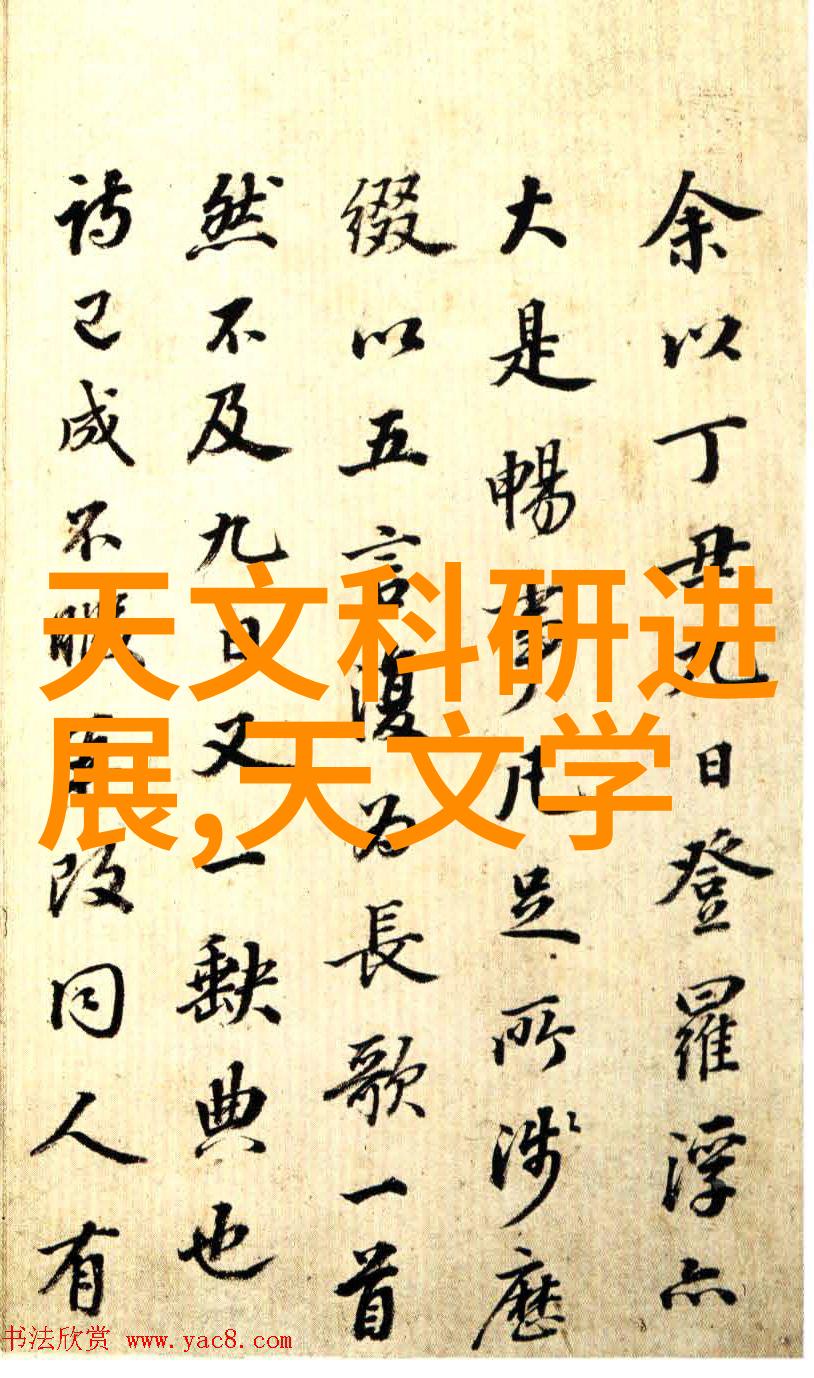 余以丁丑九日登羅浮亦
大是暢事凡足所涉歷
綴以五言復為長歌一首
然不及九日又一缺典也
詩已成不暇改同人有
天文科研进
展,天文学
书法欣赏 www.yac8.com